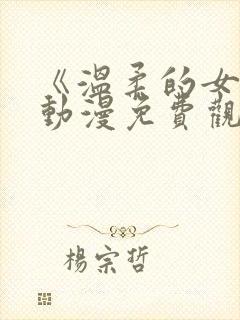 《溫柔的女
動漫免費觀
楊宗哲